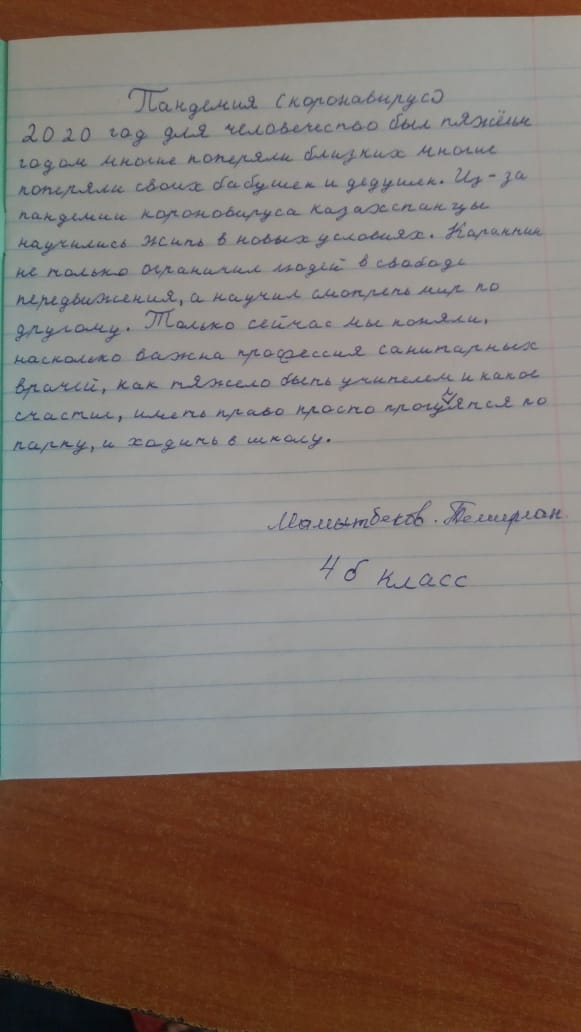 Пандемия (коронавирус)
2020 год для человечество был тяжёлым
годом многие потеряли близких многие
потеряли своих бабушек и дедушек. Из-за
пандемии короновируса казахстанцы
научились жить в новых условиях. Карантин
не только ограничил людей в свободе
передвижения, а научил смотреть мир по
другому. Только сейчас мы поняли,
насколько важна профессия санитарных
врачей, как тяжело быть учителем и какое
счастил, иметь право просто прогулятся по
парку, и ходить в школу.
Мамытбеков. Темирлан.
4 б класс